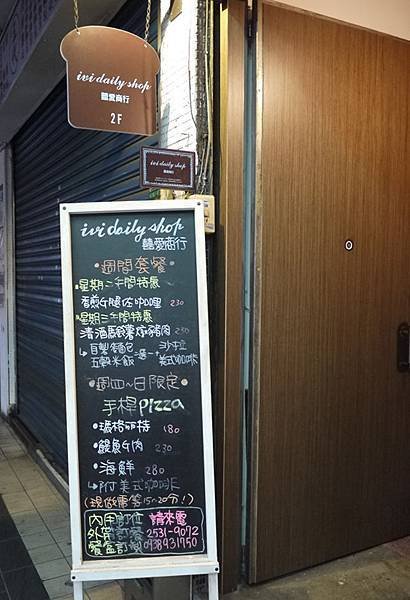 ivi daily shop
囍愛商行
2F
ivi daily shop
囍愛商行
ivi daily shop
囍愛商行
•週間套餐•
星期二午間特惠
香煎G腿佐咖哩 230
星期三午間特惠
清酒馬鈴薯燉豬肉 230
自製麵包
五穀米飯 選一+沙拉 美式咖啡
•週四~日限定•
手桿pizza
•瑪格莉特 180
•鯷魚G肉 230
•海鮮 280
↳附美式咖啡
(現做需等15~20分!)
內用訂位 請來電
2531-9072
0938931750